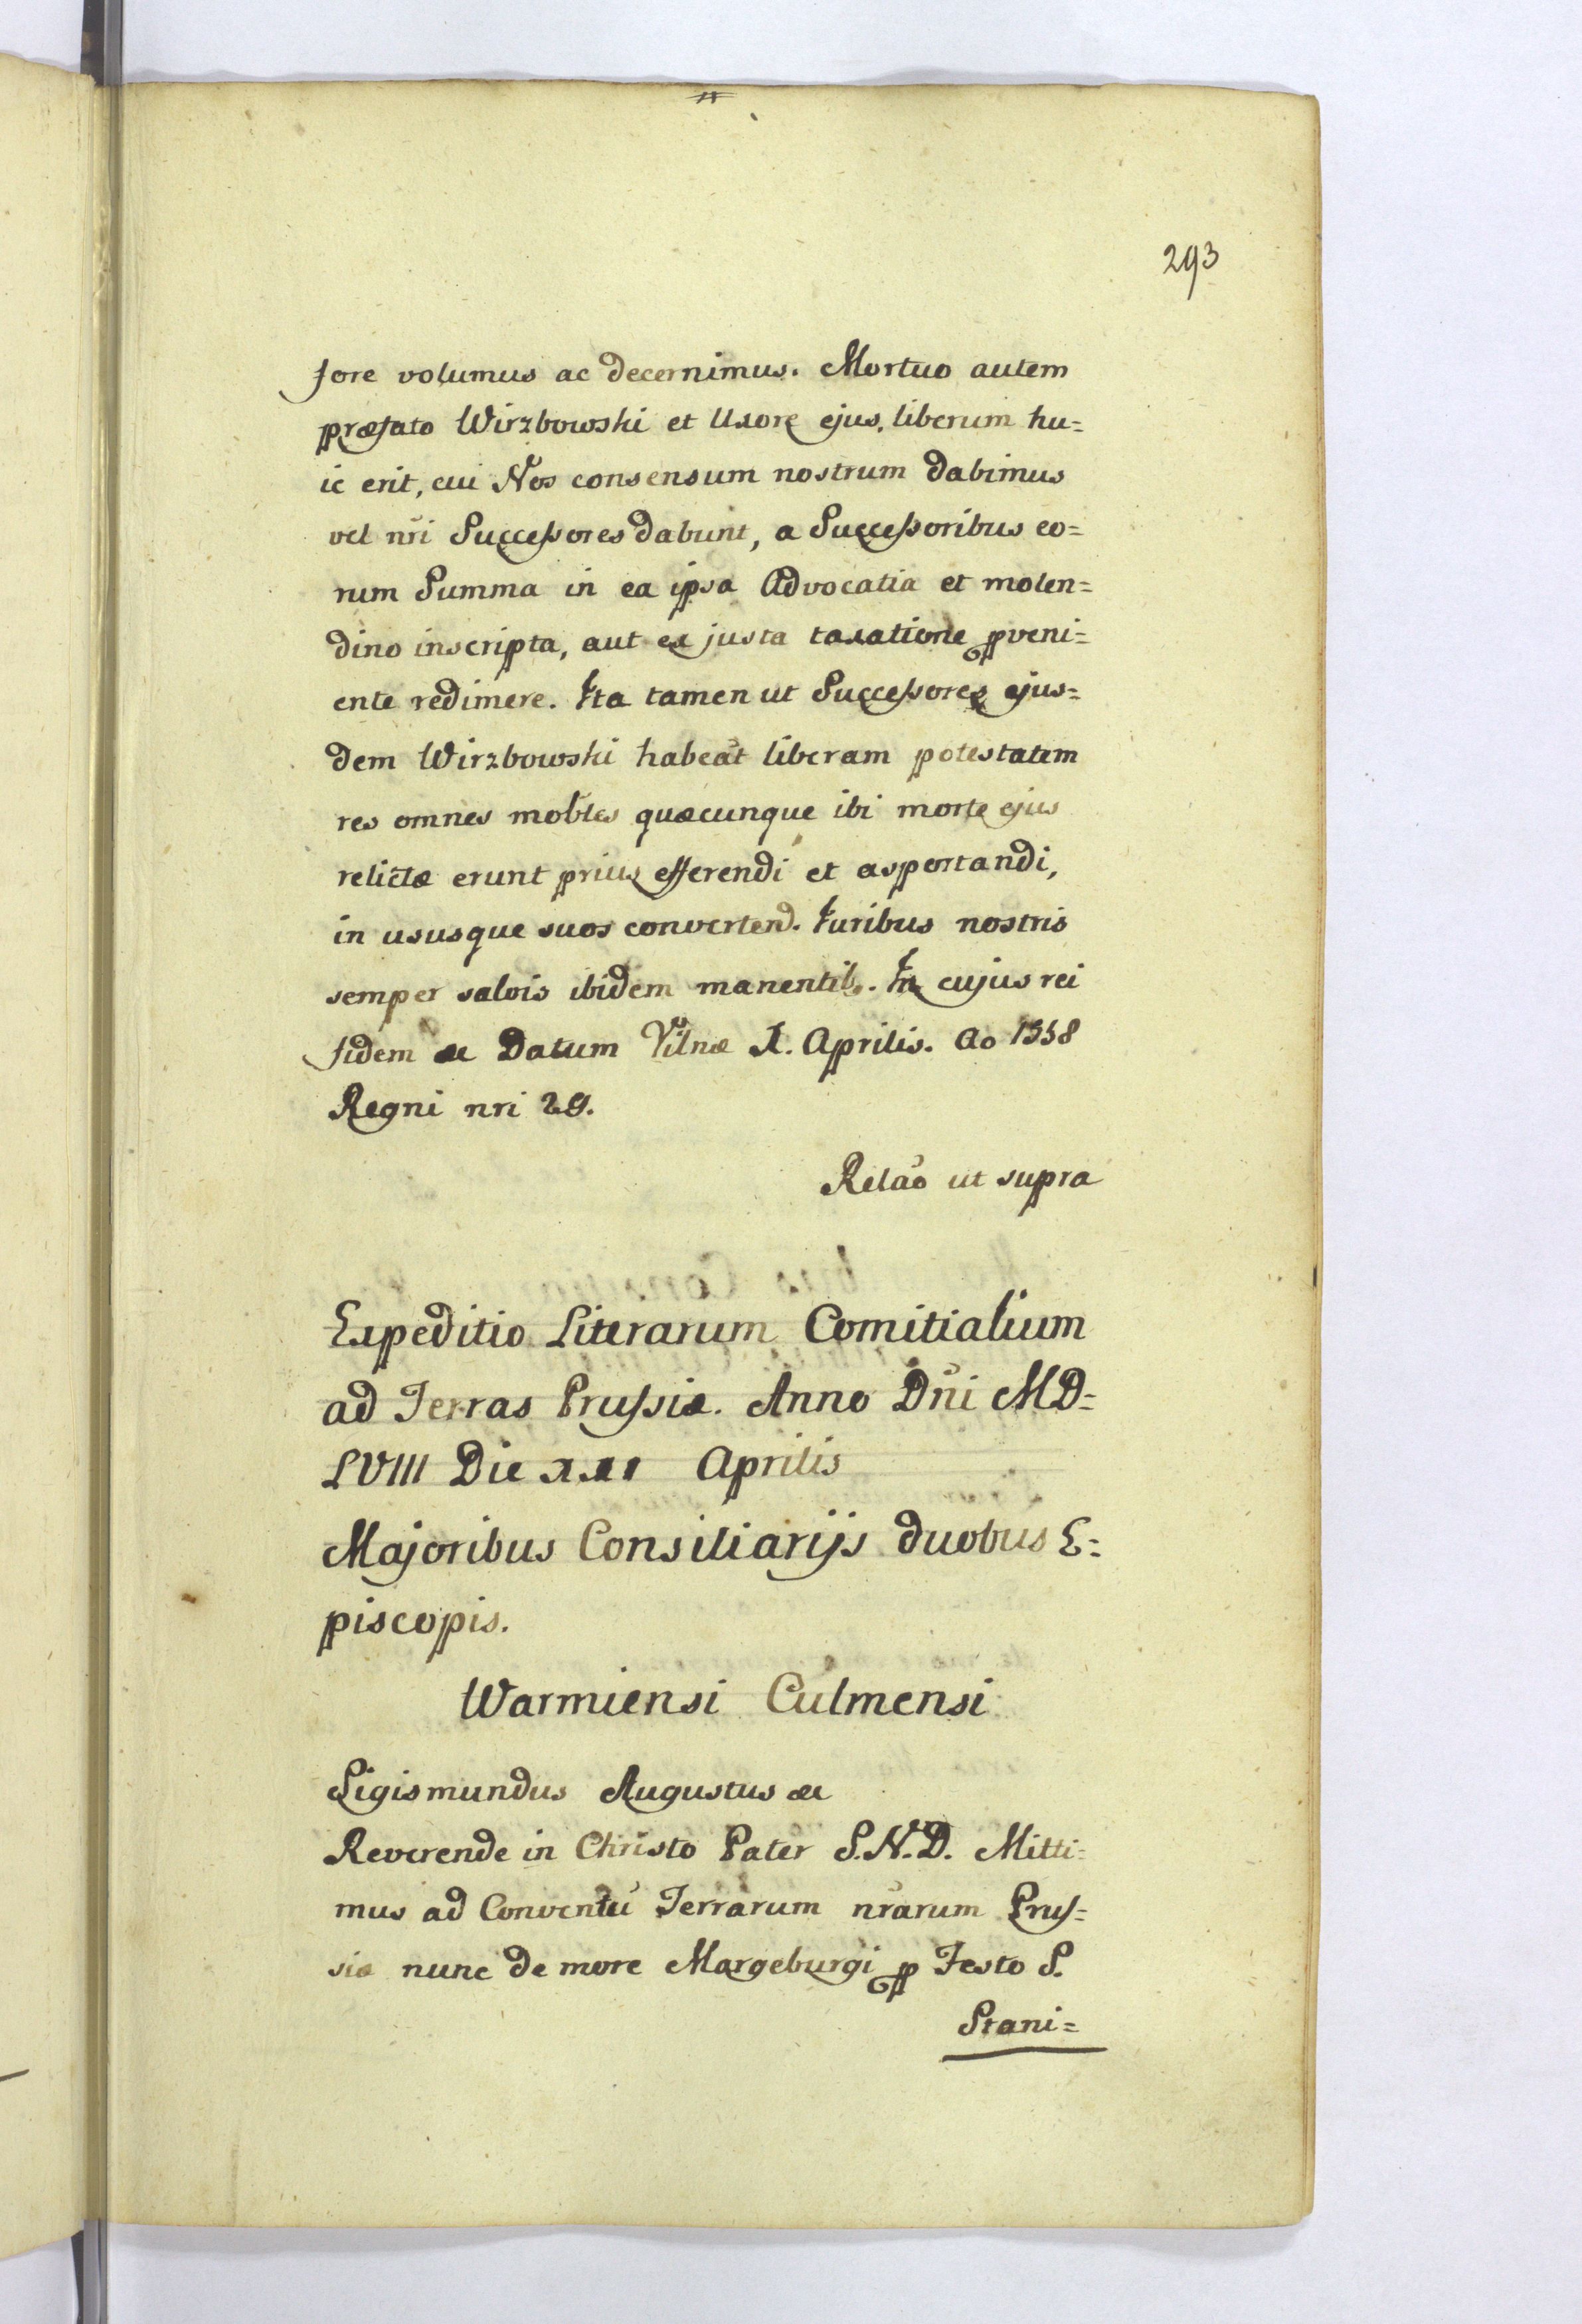 293
fore volumus ac decernimus. Mortuo autem
præfato Wirzbowski et Uxore ejus, liberum hu=
ic erit, cui Nos consensum nostrum dabimus
vel nr̃i Successores dabunt, a Successoribus eo=
rum Summa in ea ipsa Advocatia et molen=
dino inscripta, aut ex justa taxatione ꝓveni=
ente redimere. Ita tamen ut Successores ejus=
dem Wirzbowski habeãt liberam potestatem
res omnes mobl̃es quæcunque ibi morte ejus
relictæ erunt prius efferendi et asportandi,
in ususque suos convertend. Iuribus nostris
semper salvis ibidem manentib. In cujus rei
fidem &c Datum Vilnæ X. Aprilis. Ao 1558
Regni nri 29.
Relaõ ut supra
Expeditio Literarum Comitialium
ad Terras Prussiæ. Anno Dñi MD=
LVIII Die XXI Aprilis
Majoribus Consiliarijs duobus E=
piscopis.
Warmiensi Culmensi
Sigismundus Augustus &c
Reverende in Christo Pater S.N.D. Mitti=
mus ad Conventũ Terrarum nr̃arum Prus=
siæ nunc de more Margeburgi ꝓ Festo S.
Stani=